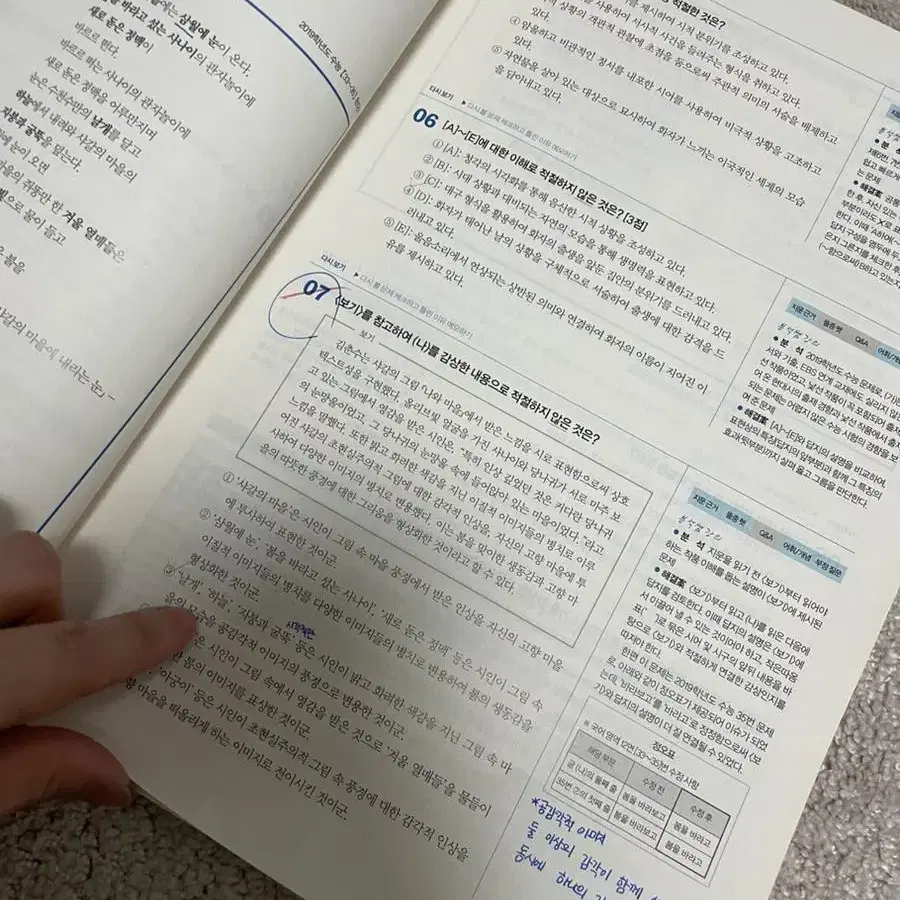 2019학년도 수능 [33~35]
삼월에 눈이 온다.
봄을 바라고 섰는 사나이의 관자놀이에
새로 돋은 정맥이
바르르 떤다.
바르르 떠는 사나이의 관자놀이에
새로 돋은 정맥을 어루만지며
눈은 수천수만의 날개를 달고
하늘에서 내려와 샤갈의 마을의
지붕과 굴뚝을 덮는다.
눈이 오면
마을의 쥐똥만 한 겨울 열매들은
빛으로 물이 들고
불을
「샤갈의 마을에 내리는 눈」-
적절한 것은?
제시하여 시적 분위기를 조성하고 있다.
사용하여 서사적 사건을 들려주는 형식을 취하고 있다.
상황의 객관적 관찰에 초점을 둠으로써 주관적 의미의 서술을 배제하고
있다.
④ 암울하고 비관적인 정서를 내포한 시어를 사용하여 비극적 상황을 고조하고
있다.
⑤ 자연물을 살아 있는 대상으로 묘사하여 화자가 느끼는 이국적인 세계의 모습
을 담아내고 있다.
다시보기 ▶ 다시 볼 문제 체크하고 틀린 이유 메모하기
06 [A]~[E]에 대한 이해로 적절하지 않은 것은? [3점]
① [A]: 청각의 시각화를 통해 음산한 시적 상황을 조성하고 있다.
② [B]: 시대 상황과 대비되는 자연의 모습을 통해 생명력을 표현하고 있다.
③ [C]: 대구 형식을 활용하여 화자의 출생을 앞둔 집안의 분위기를 드러내고 있다.
④ [D]: 화자가 태어난 날의 상황을 구체적으로 서술하여 출생에 대한 감격을 드
러내고 있다.
⑤ [E]: 울음소리에서 연상되는 상반된 의미와 연결하여 화자의 이름이 지어진 이
유를 제시하고 있다.
다시보기 ▶ 다시 볼 문제 체크하고 틀린 이유 메모하기
07 〈보기〉를 참고하여 (나)를 감상한 내용으로 적절하지 않은 것은?
보기
김춘수는 샤갈의 그림 「나와 마을」에서 받은 느낌을 시로 표현함으로써 상호
텍스트성을 구현했다. 올리브빛 얼굴을 가진 사나이와 당나귀가 서로 마주 보
고 있는 그림에서 영감을 받은 시인은, “특히 인상 깊었던 것은 커다란 당나귀
의 눈망울이었고, 그 당나귀의 눈망울 속에 들어앉아 있는 마을이었다.”라고
느낌을 말했다. 또한 밝고 화려한 색감을 지닌 이질적 이미지들의 병치로 이루
어진 샤갈의 초현실주의적 그림에 대한 감각적 인상을, 자신의 고향 마을에 투
사하여 다양한 이미지의 병치로 변용했다. 이는 봄을 맞이한 생동감과 고향 마
을의 따뜻한 풍경에 대한 그리움을 형상화한 것이라고 할 수 있다.
① ‘샤갈의 마을’은 시인이 그림 속 마을 풍경에서 받은 인상을 자신의 고향 마을
에 투사하여 표현한 것이군.
② ‘삼월에 눈’, ‘봄을 바라고 섰는 사나이’, ‘새로 돋은 정맥’ 등은 시인이 그림 속
이질적 이미지들의 병치를 다양한 이미지들의 병치로 변용하여 봄의 생동감을
형상화한 것이군.
③ ‘날개’, ‘하늘’, ‘지붕과 굴뚝’ 등은 시인이 밝고 화려한 색감을 지닌 그림 속 마
을의 모습을 공감각적 이미지의 풍경으로 변용한 것이군.
시각적만
은 시인이 그림 속에서 영감을 받은 것으로 ‘겨울 열매들’을 물들이
봄의 이미지를 표상한 것이군.
‘아궁이’ 등은 시인이 초현실주의적 그림 속 풍경에 대한 감각적 인상을
향 마을을 떠올리게 하는 이미지로 전이시킨 것이군.
지문 근거 Q&A
● 분 석 2019학년도 수능 문제로, (가)
서와 기출, EBS 연계 교재에도 실리지 않은
낯선 작품이었고, 낯선 작품이 꼭 포함되어 출제
어 온 현대시의 출제 경향과 낯선 작품에서 출제
되는 문제는 어렵지 않은 수능 시험의 경향을 보
여 준 문제
● 해결案 [A]~[E]와 답지의 설명을 비교하여,
표현상의 특징(답지의 앞부분)과 함께 그 특징의
효과(뒷부분)까지 살펴 옳고 그름을 판단한다.
지문 근거 Q&A 어휘/개념 부정 질문
● 분 석 지문을 읽기 전 〈보기〉부터 읽어야
하는, 작품 이해를 돕는 설명이 〈보기〉에 제시된
문제
● 해결案 〈보기〉부터 읽고, (나)를 읽은 다음에
답지를 검토한다. 이때 답지의 설명은 〈보기〉에
서 이끌어 낼 수 있는 것이어야 하고, 작은따옴
표(‘ ’)로 묶은 시어 및 시구의 앞뒤 내용을 바
탕으로 〈보기〉와 적절하게 연결한 감상인지를
따져야 한다.
한편 이 문제는 2019학년도 수능 35번 문제
로, 아래와 같이 정오표가 제공되어 이슈가 되었
는데, ‘바라보고’를 ‘바라고’로 정정함으로써 〈보
기〉와 답지의 설명이 더 잘 연결될 수 있었다.
정오표
※ 국어 영역 12면 (33~35)번 수정 사항
해당 부분 수정 전 수정 후
글 (나)의 둘째 줄 봄을 바라보고 봄을 바라고
35번 ②의 첫째 줄 봄을 바라보고 봄을 바라고
*공감각적 이미지
둘 이상의 감각이 함께
동시에 하나의